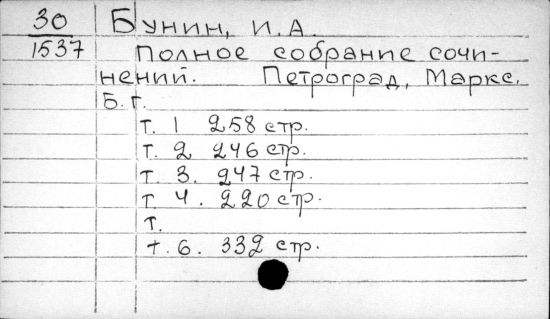 30 Бунин, И.А.
1537 Полное собрание сочи-
нений. Петроград, Маркс.
Б.г.
т. 1 258 стр.
т. 2 246 стр.
т. 3. 247 стр.
т. 4. 220 стр.
т.
т. 6. 332 стр.